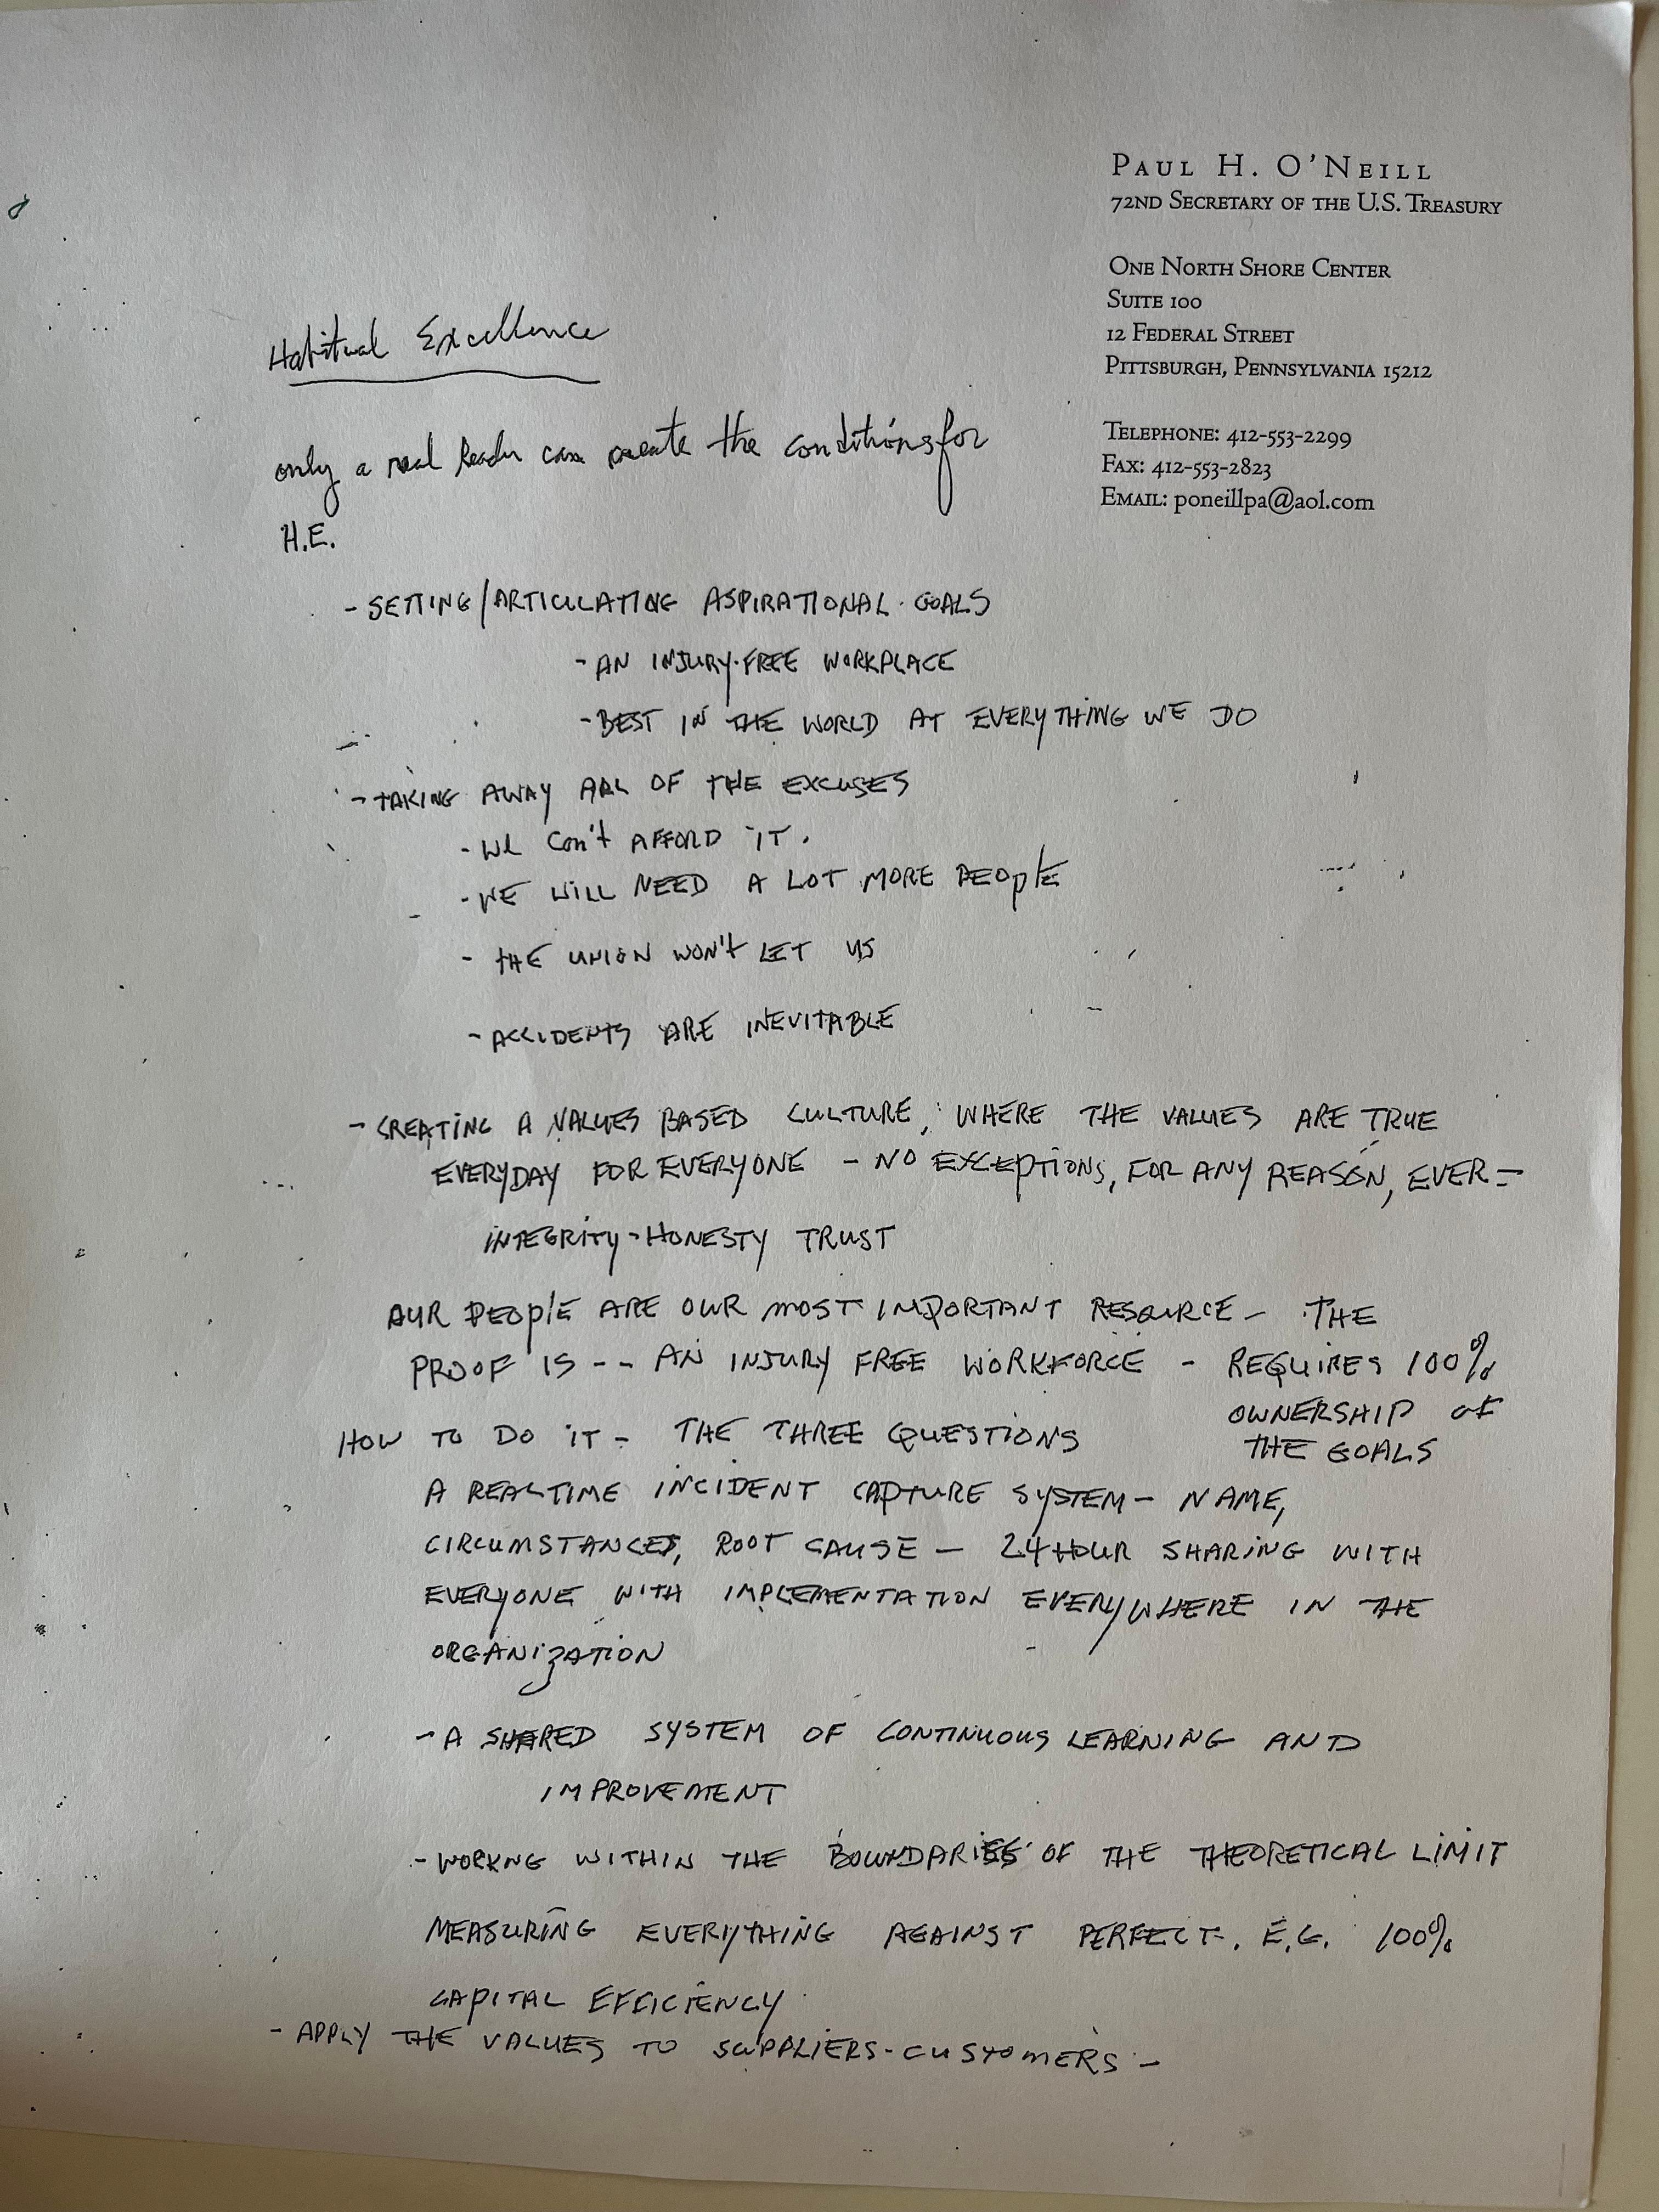 PAUL H. O'NEILL
72ND SECRETARY OF THE U.S. TREASURY
ONE NORTH SHORE CENTER
SUITE 100
12 FEDERAL STREET
PITTSBURGH, PENNSYLVANIA 15212
TELEPHONE: 412-553-2299
FAX: 412-553-2823
EMAIL: poneillpa@aol.com
Habitual Excellence
only a real leader can create the conditions for
H.E.
- SETTING/ARTICULATING ASPIRATIONAL GOALS
- AN INJURY-FREE WORKPLACE
- BEST IN THE WORLD AT EVERYTHING WE DO
- TAKING AWAY ALL OF THE EXCUSES
- WE CAN'T AFFORD IT.
- WE WILL NEED A LOT MORE PEOPLE
- THE UNION WON'T LET US
- ACCIDENTS ARE INEVITABLE
- CREATING A VALUES BASED CULTURE, WHERE THE VALUES ARE TRUE
EVERYDAY FOR EVERYONE - NO EXCEPTIONS, FOR ANY REASON, EVER -
INTEGRITY - HONESTY TRUST
OUR PEOPLE ARE OUR MOST IMPORTANT RESOURCE - THE
PROOF IS -- AN INJURY FREE WORKFORCE - REQUIRES 100%
OWNERSHIP OF
THE GOALS
HOW TO DO IT - THE THREE QUESTIONS
A REALTIME INCIDENT CAPTURE SYSTEM - NAME,
CIRCUMSTANCES, ROOT CAUSE - 24 HOUR SHARING WITH
EVERYONE WITH IMPLEMENTATION EVERYWHERE IN THE
ORGANIZATION
- A SHARED SYSTEM OF CONTINUOUS LEARNING AND
IMPROVEMENT
- WORKNG WITHIN THE BOUNDARIES OF THE THEORETICAL LIMIT
MEASURING EVERYTHING AGAINST PERFECT. E.G. 100%
CAPITAL EFFICIENCY
- APPLY THE VALUES TO SUPPLIERS - CUSTOMERS -